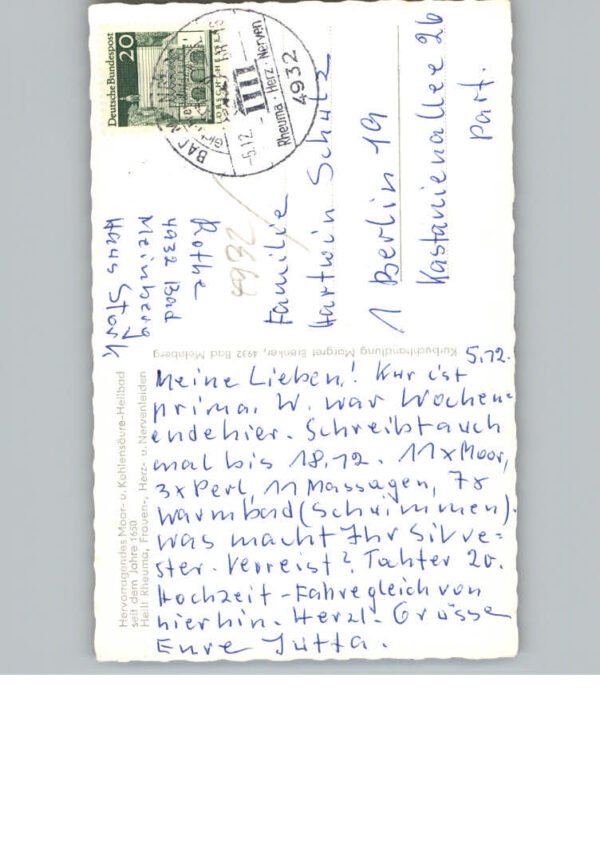 Hervorragendes Moor- u. Kohlensäure-Heilbad
seit dem Jahre 1650
Heilt Rheuma, Frauen-, Herz- u. Nervenleiden
5.12.
Meine Lieben! Kur ist
prima. W. war Wochen=
ende hier. Schreibt auch
mal bis 18.12. 11xMoor,
3xPerl, 11 Massagen, 7x
Warmbad (Schwimmen).
Was macht Ihr Silve=
ster. Verreist? Tochter 20.
Hochzeit - Fahre gleich von
hier hin. Herzl. Grüsse
Eure Jutta.
Kurbuchhandlung Margret Brenker, 4933 Bad Meinberg
Rothe
4932 Bad
Meinberg
Haus Stork
4932
Deutsche Bundespost
20
LORSCH HESSEN
BAD
-5.12.
Rheuma · Herz · Nerven
4932
Familie
Hartwin Schütz
1 Berlin 19
Kastanienallee 26
Part.